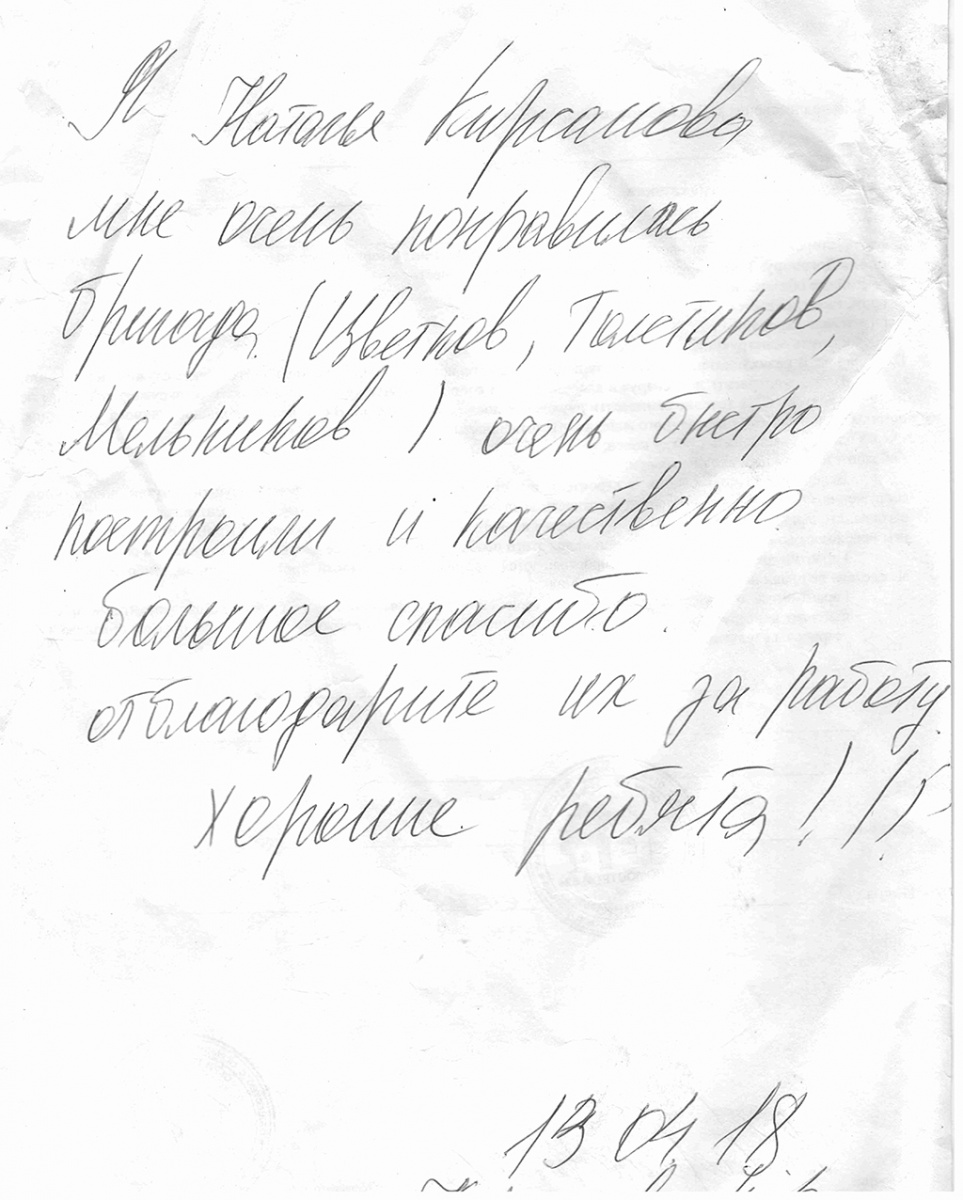 Я Наталья Кирсанова
мне очень понравилась
бригада. (Цветков,
Мельников) очень быстро
построили и качественно
большое спасибо.
отблагодарите их за работу.
хорошие ребята!!!
13 04 18